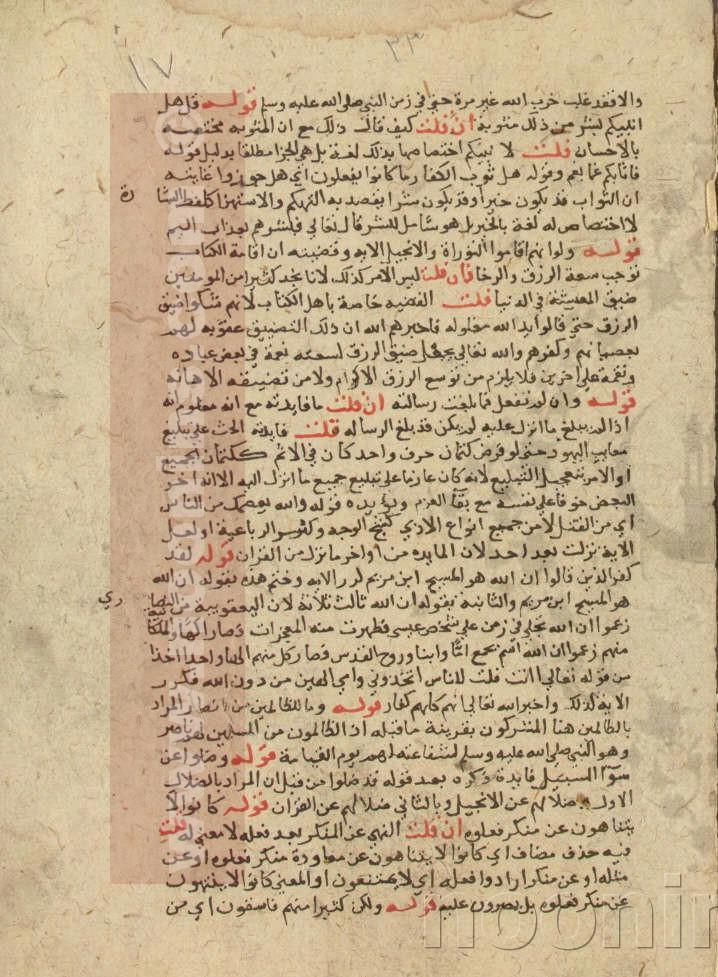 ١٧
٣٣
والا فقد غلب حزب الله غير مرة حتى في زمن النبي صلى الله عليه وسلم قوله قل هل
انبيكم بشر من ذلك مثوبة ان قلت كيف قال ذلك مع ان المثوبة مختصة
بالاحسان قلت لا نسلم اختصاصها بذلك لغة بل هي الجزا مطلقا بدليل قوله
فاثابكم غما بغم وقوله هل ثوب الكفار ما كانوا يفعلون اي هل جوزوا غايته
ان الثواب قد يكون خيرا وقد يكون شرا بقصد به التهكم والاستهزا كلفظ البشا
رة
لا اختصاص له لغة بالخير بل هو شامل للشر قال تعالى فبشرهم بعذاب اليم
قوله ولو انهم اقاموا التوراة والانجيل الاية وقضيته ان اقامة الكتاب
توجب سعة الرزق والرخا فان قلت ليس الامر كذلك لانا نجد كثيرا من المومنين
ضيق المعيشة في الدنيا قلت القضية خاصة باهل الكتاب لانهم شكوا ضيق
الرزق حتى قالوا يد الله مغلولة فاخبرهم الله ان ذلك التضييق عقوبة لهم
بعصيانهم وكفرهم والله تعالى يجعل ضيق الرزق لسعته نعمة في بعض عباده
ونقمة على اخرين فلا يلزم من توسع الرزق الاكرام ولا من تضييقه الاهانة
قوله وان لم تفعل فما بلغت رسالته ان قلت ما فايدته مع انه معلوم انه
اذا لم يبلغ ما انزل عليه لم يكن قد بلغ الرسالة قلت فايدته الحث على تبليغ
معايب اليهود حتى لو فرض كتمان حرف واحد كان في الاثم ككتمان الجميع
او الامر بتعجيل التبليغ لانه كان عازما على تبليغ جميع ما انزل اليه الا انه اخر
البعض خوفا على نفسه مع بقا العزم ويؤيده قوله والله يعصمك من الناس
اي من القتل لا من جميع انواع الاذي كشج الوجه وكسر الرباعية او لعل
الاية نزلت بعد احد لان المايدة من اواخر ما نزل من القران قوله لقد
كفر الذين قالوا ان الله هو المسيح ابن مريم كرر الاية وختم هذه بقوله ان الله
هو المسيح ابن مريم والثانية بقوله ان الله ثالث ثلاثة لان اليعقوبية من النصا
ري
زعموا ان الله تجلى في زمن على شخص عيسى فظهرت منه المعجزات فصار الها والملكا
نية
منهم زعموا ان الله اسم يجمع ابا وابنا وروح القدس فصار كل منهم الها واحدا اخذا
من قوله تعالى اانت قلت للناس اتخذوني وامي الهين من دون الله فكرر
الاية لذلك واخبر الله تعالى انهم كلهم كفار قوله وما للظالمين من انصار المراد
بالظالمين هنا المشركون بقرينة ما قبله اذ الظالمون من المسلمين لهم ناصر
وهو النبي صلى الله عليه وسلم لشفاعته لهم يوم القيامة قوله وضلوا عن
سوا السبيل فايدة ذكره بعد قوله قد ضلوا من قبل ان المراد بالضلال
الاول ضلالهم عن الانجيل وبالثاني ضلالهم عن القران قوله كانوا لا
يتناهون عن منكر فعلوه ان قلت النهي عن المنكر بعد فعله لا معنى له قلت
فيه حذف مضاف اي كانوا لا يتناهون عن معاودة منكر فعلوه او عن
مثله او عن منكر ارادوا فعله اي لا يمتنعون او المعنى كانوا لا ينتهون
عن منكر فعلوه بل يصرون عليه قوله ولكن كثيرا منهم فاسقون اي من